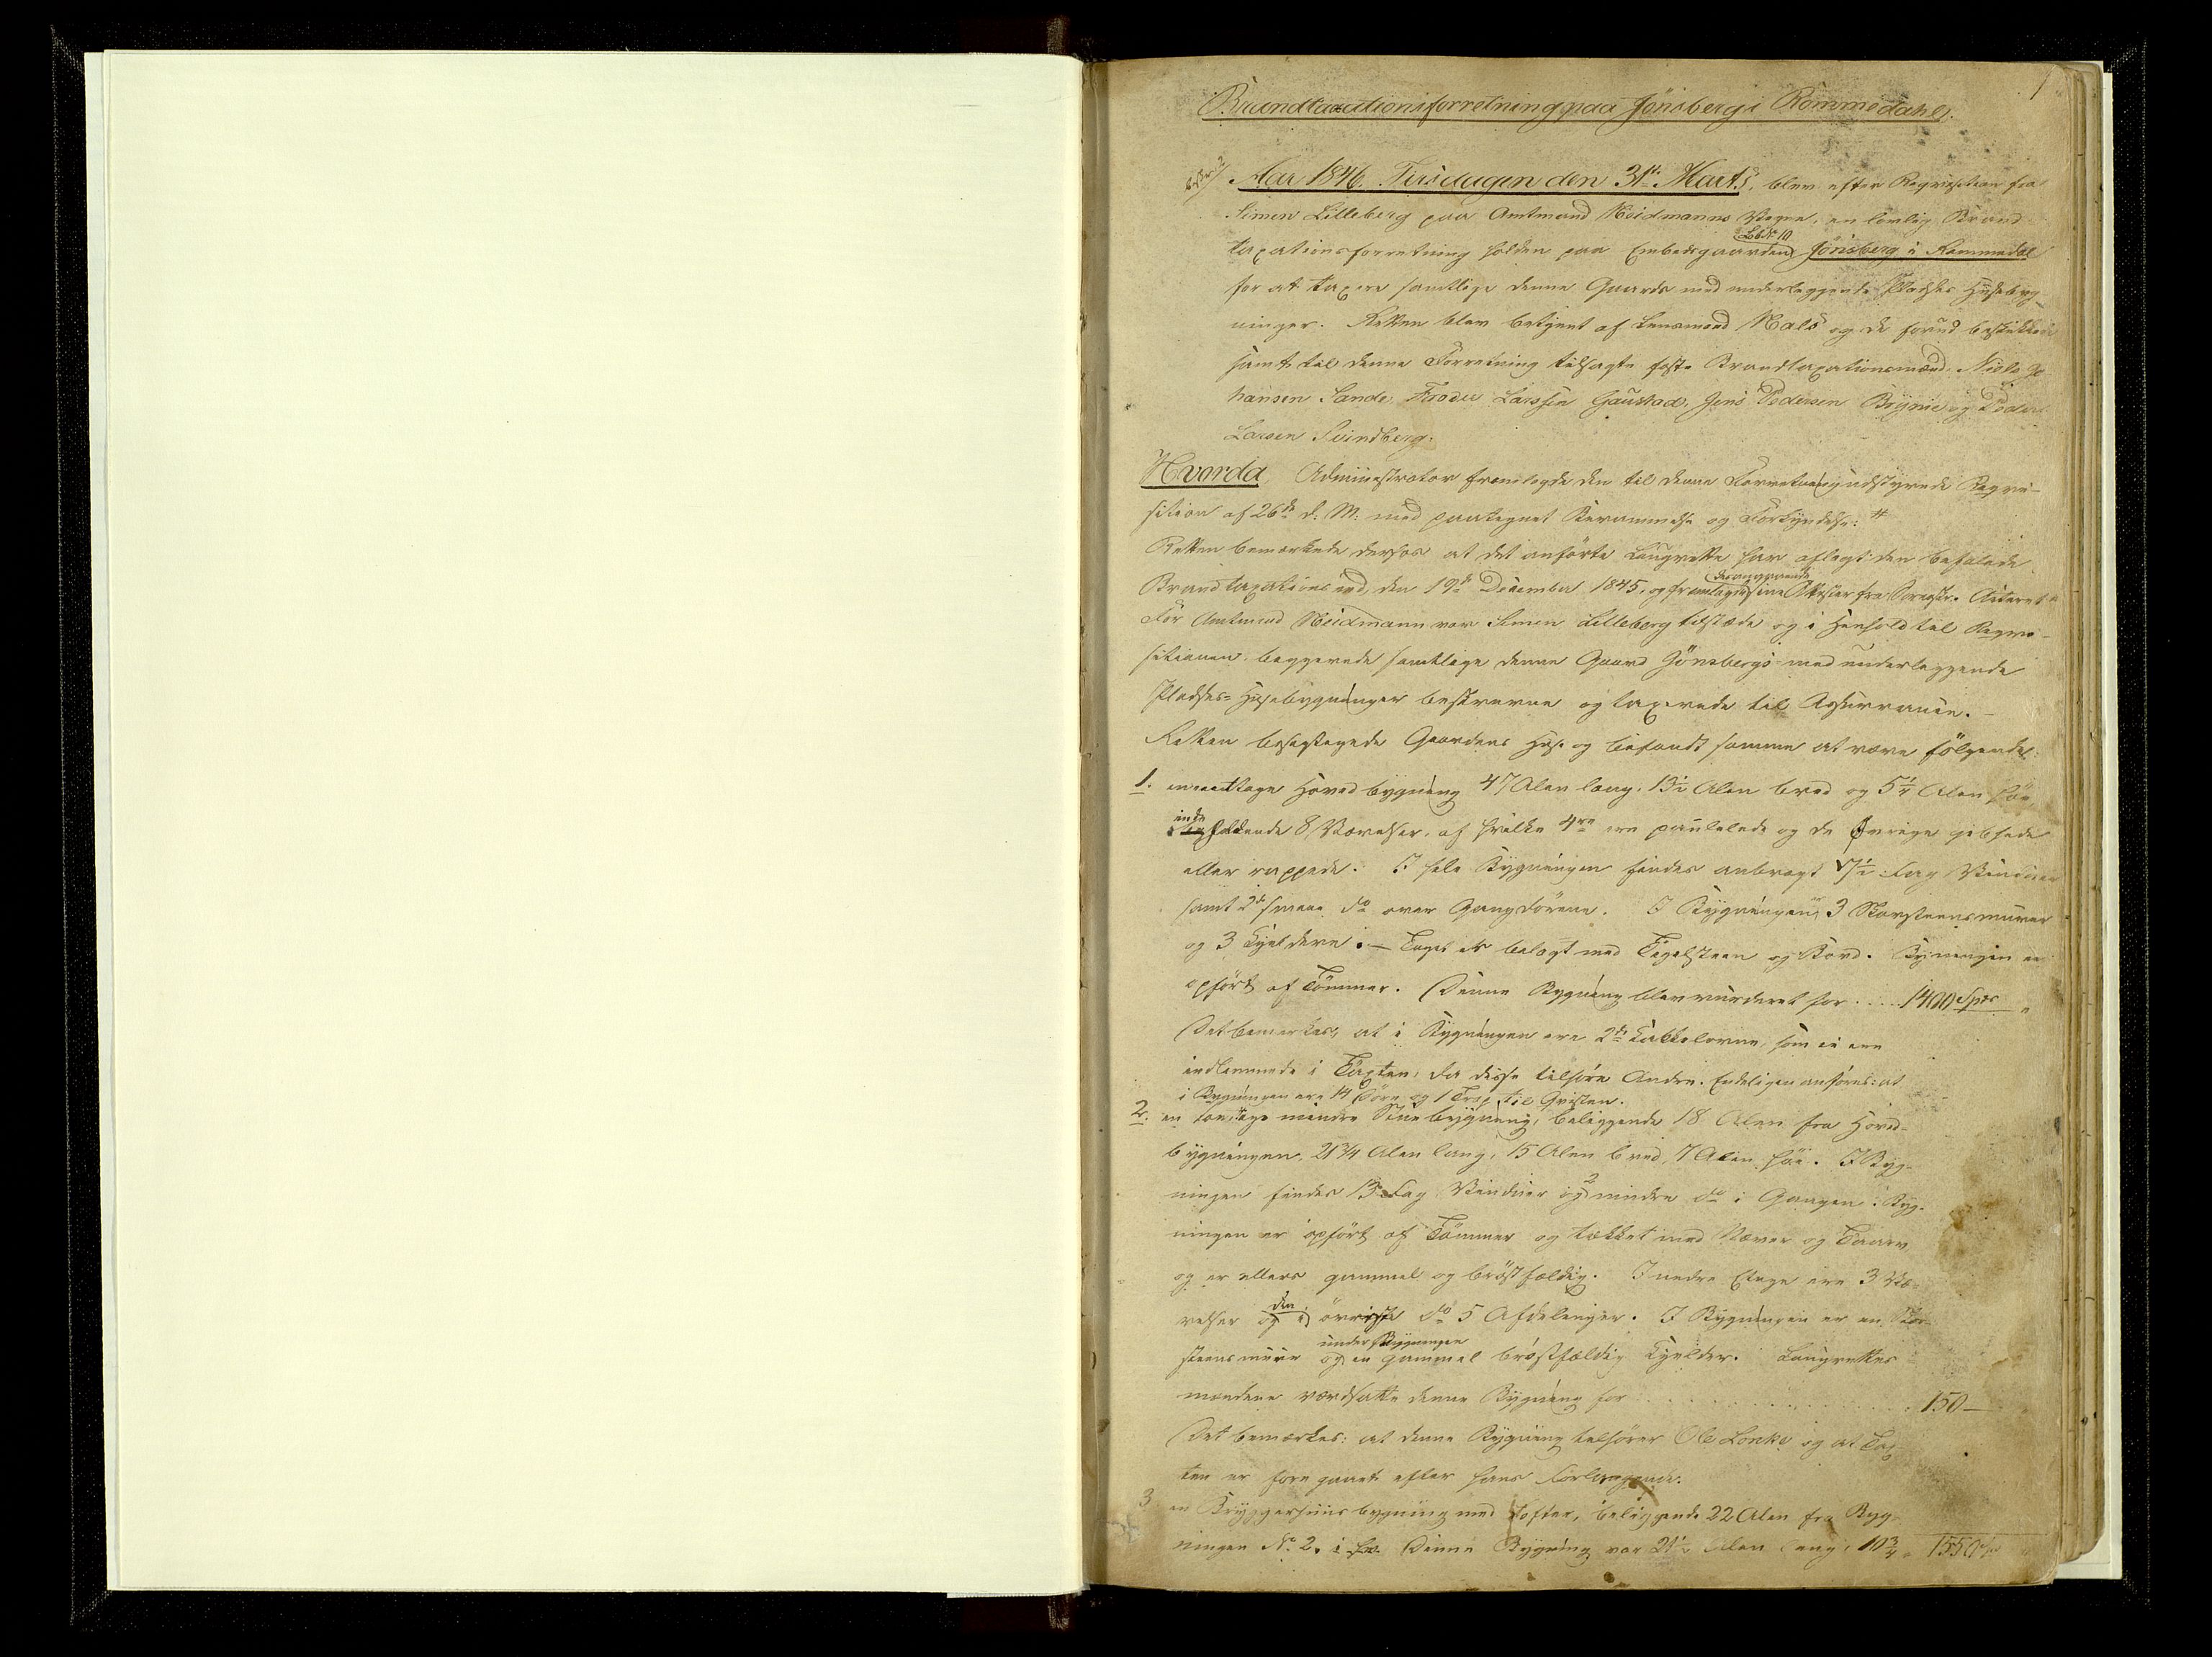 1
Brandtaxationsforretning paa Jönsberg i Rommedahl.
Aar 1846. Tirsdagen den 31te Marts, blev efter Reqvisition fra
Simen Lilleberg paa Amtmand Heidmanns Vegne, en lovlig Brand
LbNo 10
taxationsforretning holden paa Embedsgaarden Jönsberg i Rommedal
for at taxere samtlige denne Gaards med underliggende Pladses Husebyg-
ninger. Retten blev betjent af Lensmand Hals og de forud beskikkede
samt til denne Forretning tilsagte faste Brandtaxationsmænd Niels Jo
hansen Sande, Larssen Gaustad, Jens Pedersen Bÿnie og Peder
Larsen Svindberg.
Hvorda Administrator fremlagde den til denne Forretning udstyrede Reqvi-
sition af 26de d: M: med paategnet Berammelse og Forkyndelse: #
Retten bemærkede derhos at det anførte Laugrette har aflagt den befalede
derangaaende
Brandtaxationsed, den 19de December 1845, og fremlagde sine Attester fra Sorenskr.
For Amtmand Heidmann var Simen Lilleberg tilstæde og i Henhold til Reqvi-
sitionen begjerede samtlige denne Gaard Jönsbergs med underliggende
Pladses-Husebygninger beskrevne og taxerede til Assurance.
Retten besigtigede Gaardens Huse og befandt samme at være følgende:
1. en eenetages Hovedbygning 47 Alen lang, 13½ Alen bred og 5¼ Alen höi,
inde
holdende 8 Værelser, af hvilke 4re ere panelede og de Øvrige gibsede
eller rappede. I hele Bygningen findes anbragt 17½ Fag Vinduer
samt 2de smaae do over Gangdörene. I Bygningen 3 Skorsteensmure
og 3 Kjeldere. – Taget er belagt med Tegelsteen og Bord. Bygningen er
opfört af Tömmer. Denne Bygning blev vurderet for . . . . . 1400 Spdr "
Det bemærkes, at i Bygningen ere 2de Kakkelovne, som ei ere
indlemmede i Taxten, da disse tilhöre Andre. Endeligen anföres: at
i Bygningen ere 14 Döre og 1 Trap til Qvisten.
2. en toetages mindre Stuebygning, beliggende 18 Alen fra Hoved-
bygningen. 21¾ Alen lang, 15 Alen bred, 7 Alen höi. I Byg-
2
ningen findes 13 Fag Vinduer og mindre do i Gangen. Byg-
ningen er opfört af Tömmer og tækket med Næver og Taarv
og er ellers gammel og bröstfældig. I nedre Etage ere 3 Væ-
den
relser og i övriste do 5 Afdelinger. I Bygningen er en Skor-
under Bygningen
steensmuur og en gammel bröstfældig Kjelder. Laugrettes
mændene værdsatte denne Bygning for . . . . . . . . . . 150 –
Det bemærkes: at denne Bygning tilhörer Ole Lonke og at Tax
ten er foregaaet efter hans Forlangende.
3 en Bryggerhuusbygning med Lofter, beliggende 22 Alen fra Byg
ningen No 2. Denne Bygning var 21½ Alen lang, 10¾ " 1550 Spd